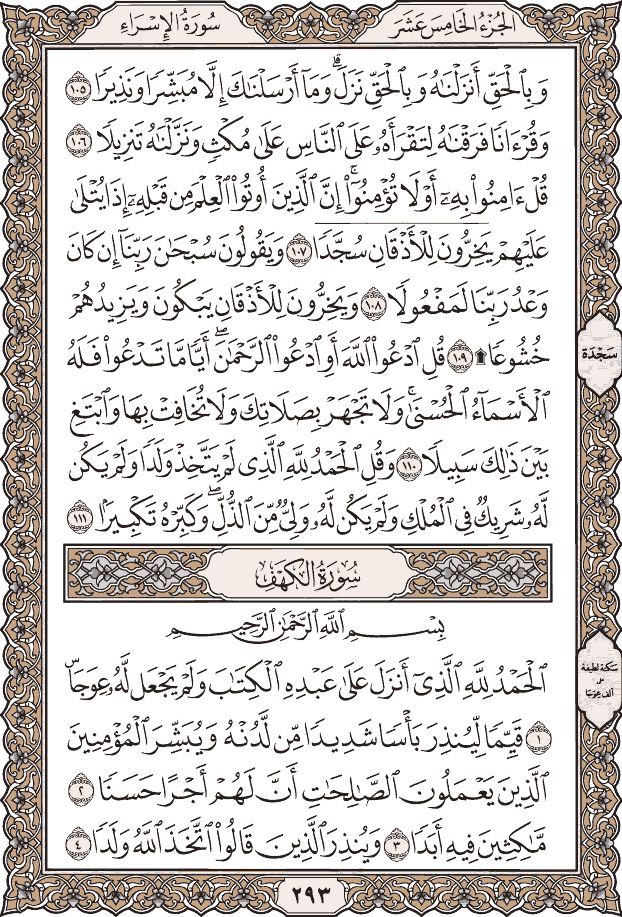 الجُزْءُ الخَامِسَ عَشَرَ
سُورَةُ الإِسْرَاءِ
وَبِٱلْحَقِّ أَنزَلْنَٰهُ وَبِٱلْحَقِّ نَزَلَ ۗ وَمَآ أَرْسَلْنَٰكَ إِلَّا مُبَشِّرًا وَنَذِيرًا ١٠٥
وَقُرْءَانًا فَرَقْنَٰهُ لِتَقْرَأَهُۥ عَلَى ٱلنَّاسِ عَلَىٰ مُكْثٍ وَنَزَّلْنَٰهُ تَنزِيلًا ١٠٦
قُلْ ءَامِنُوا۟ بِهِۦٓ أَوْ لَا تُؤْمِنُوٓا۟ ۚ إِنَّ ٱلَّذِينَ أُوتُوا۟ ٱلْعِلْمَ مِن قَبْلِهِۦٓ إِذَا يُتْلَىٰ
عَلَيْهِمْ يَخِرُّونَ لِلْأَذْقَانِ سُجَّدًا ١٠٧ وَيَقُولُونَ سُبْحَٰنَ رَبِّنَآ إِن كَانَ
وَعْدُ رَبِّنَا لَمَفْعُولًا ١٠٨ وَيَخِرُّونَ لِلْأَذْقَانِ يَبْكُونَ وَيَزِيدُهُمْ
خُشُوعًا ۩ ١٠٩ قُلِ ٱدْعُوا۟ ٱللَّهَ أَوِ ٱدْعُوا۟ ٱلرَّحْمَٰنَ ۖ أَيًّا مَّا تَدْعُوا۟ فَلَهُ
سَجْدَة
ٱلْأَسْمَآءُ ٱلْحُسْنَىٰ ۚ وَلَا تَجْهَرْ بِصَلَاتِكَ وَلَا تُخَافِتْ بِهَا وَٱبْتَغِ
بَيْنَ ذَٰلِكَ سَبِيلًا ١١٠ وَقُلِ ٱلْحَمْدُ لِلَّهِ ٱلَّذِى لَمْ يَتَّخِذْ وَلَدًا وَلَمْ يَكُن
لَّهُۥ شَرِيكٌ فِى ٱلْمُلْكِ وَلَمْ يَكُن لَّهُۥ وَلِىٌّ مِّنَ ٱلذُّلِّ ۖ وَكَبِّرْهُ تَكْبِيرًۢا ١١١
سُورَةُ الكَهْفِ
بِسْمِ ٱللَّهِ ٱلرَّحْمَٰنِ ٱلرَّحِيمِ
ٱلْحَمْدُ لِلَّهِ ٱلَّذِىٓ أَنزَلَ عَلَىٰ عَبْدِهِ ٱلْكِتَٰبَ وَلَمْ يَجْعَل لَّهُۥ عِوَجَا ۜ
سكتة لطيفة
على
ألف عِوَجَا
١ قَيِّمًا لِّيُنذِرَ بَأْسًا شَدِيدًا مِّن لَّدُنْهُ وَيُبَشِّرَ ٱلْمُؤْمِنِينَ
ٱلَّذِينَ يَعْمَلُونَ ٱلصَّٰلِحَٰتِ أَنَّ لَهُمْ أَجْرًا حَسَنًا ٢
مَّٰكِثِينَ فِيهِ أَبَدًا ٣ وَيُنذِرَ ٱلَّذِينَ قَالُوا۟ ٱتَّخَذَ ٱللَّهُ وَلَدًا ٤
٢٩٣